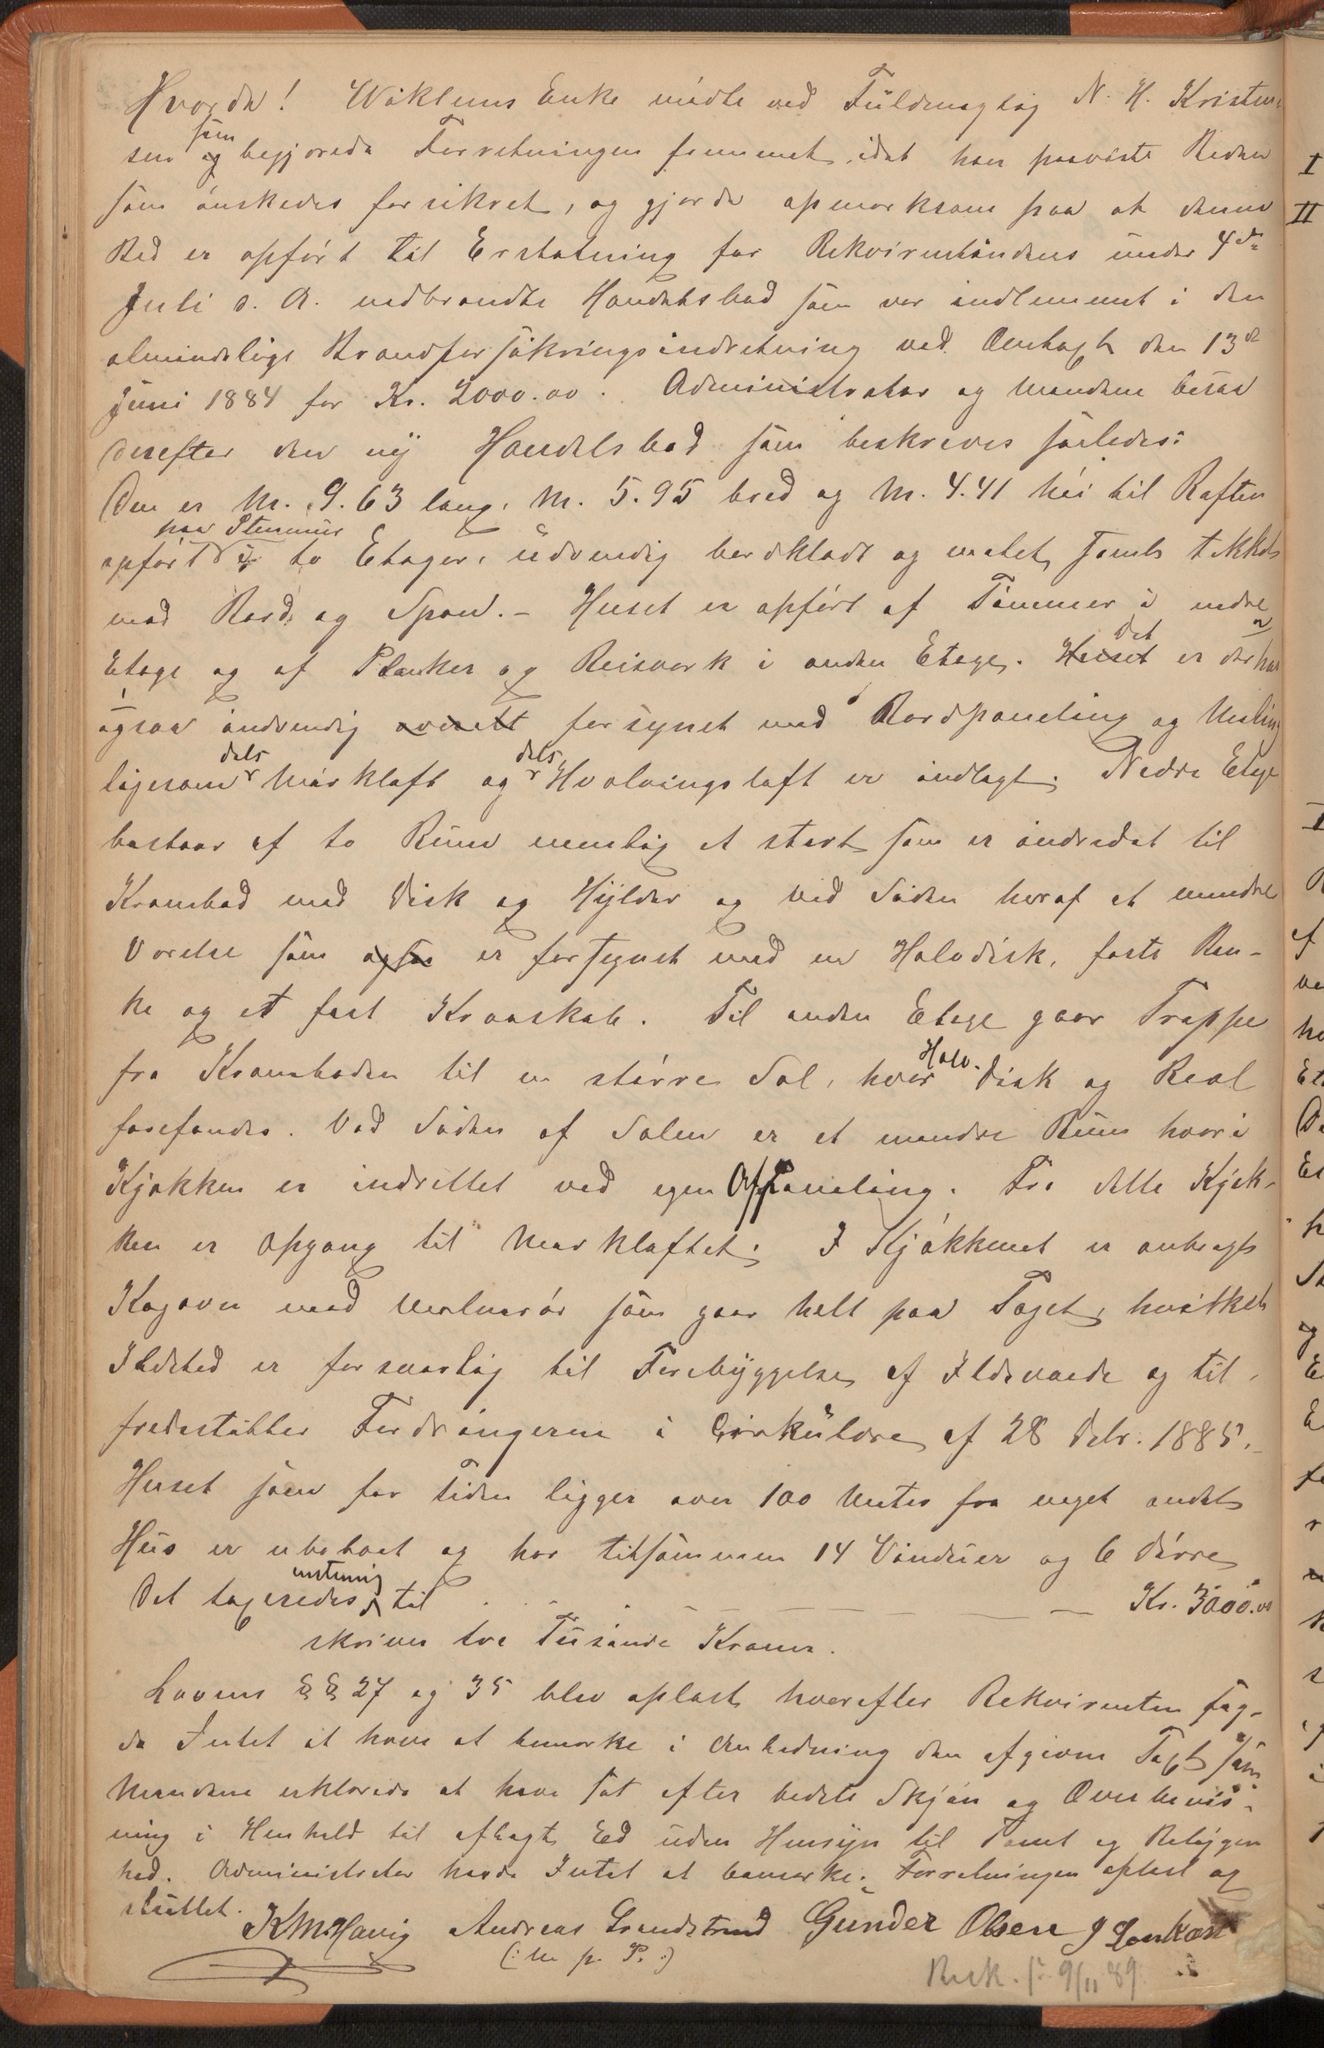 Hvorda! Wiklunds Enke mødte ved Fuldmægtig N. H. Kristen-
sen som og begjærede Forretningen fremmet, idet han paaviste Boden
som ønskedes forsikret, og gjorde opmærksom paa at denne
Bod er opført til Erstatning for Rekvirentindens under 4de
Juli d. A. nedbrændte Handelsbod som var indlemmet i den
almindelige Brandforsikringsindretning ved Omtaxt den 13de
Juni 1884 for Kr. 2000.00. Administrator og Mændene besaa
derefter den ny Handelsbod som beskrives saaledes:
Den er M. 9.63 lang, M. 5.95 bred og M. 4.41 høi til Raften
opført paa Stenmur i to Etager, udvendig bordklædt og malet, samt tækket
med Bord og Spon. - Huset er opført af Tømmer i nedre
Etage og af Planker og Reisverk i anden Etage. Huset Det er derhos
ogsaa indvendig overalt forsynet med Bordpaneling og Maling
ligesom dels Mørkloft og dels Hvælvingsloft er indlagt. Nedre Etage
bestaar af to Rum nemlig et stort som er indredet til
Krambod med Disk og Hylder og ved Siden heraf et mindre
Værelse som ogsaa er forsynet med en Halvdisk, faste Bæn-
ke og et fast Kraaskab. Til anden Etage gaar Trappe
fra Kramboden til en større Sal, hvor Halv- Disk og Reol
forefindes. Ved Siden af Salen er et mindre Rum hvori
Kjøkken er indrettet ved egen Afpaneling. Fra dette Kjøk-
ken er Opgang til Mørkloftet. I Kjøkkenet er anbragt
Kogeovn med Malmrør som gaar helt paa Taget, hvilket
Ildsted er forsvarlig til Forebyggelse af Ildsvaade og til-
fredsstiller Fordringerne i Cirkulære af 28 Debr. 1885.
Huset som for Tiden ligger over 100 Meter fra noget andet
Hus er ubeboet og har tilsammen 14 Vinduer og 6 Dørre
Det taxeredes enstemmig til - - - Kr. 3000.00
skriver tre Tusinde Kroner.
Lovens §§ 27 og 35 blev oplæst, hvorefter Rekvirenten sag-
de Intet at have at bemærke i Anledning den afgivne Taxt, som
Mændene erklærede at have sat efter bedste Skjøn og Overbevis-
ning i Henhold til aflagt Ed uden Hensyn til Tomt og Beliggen
hed. Administrator havde Intet at bemærke. Forretningen oplæst og
sluttet.
K M Havig Andreas Grendstrand Gunder Olsen J
(: m. p. P. :)
Besk. s. 9/11 89.